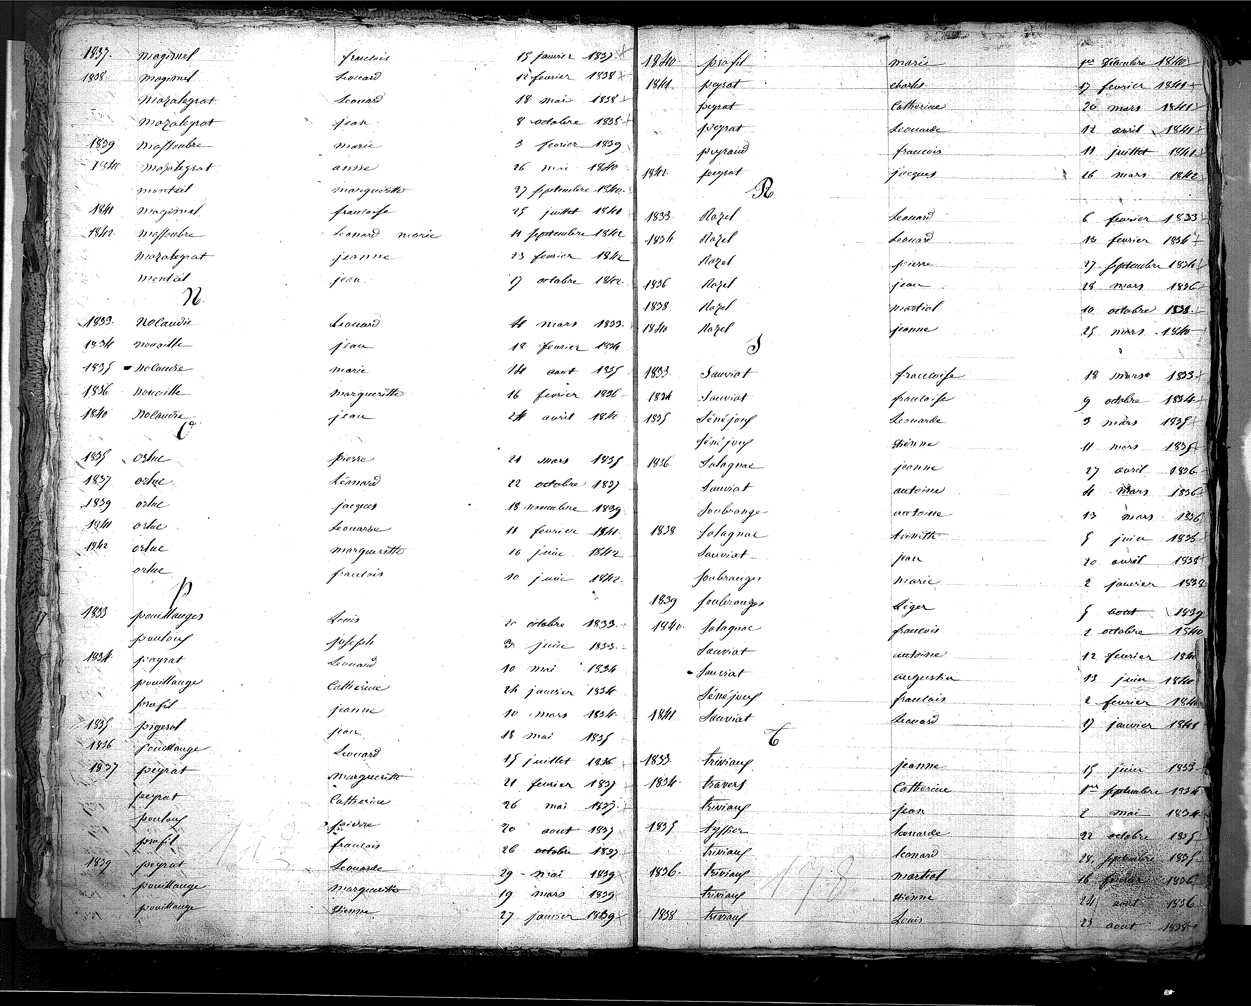 1837. magimel francois 15 janvier 1837
1838 magimel Leonard 12 fevrier 1838
mazaleyrat Leonard 18 mai 1838
mazaleyrat jean 8 octobre 1838
1839 massoubre marie 3 fevrier 1839
1840 mazaleyrat anne 26 mai 1840
monteil margueritte 27 septembre 1840
1841 magimel francoise 25 juillet 1841
1842 massoubre Leonard marie 11 septembre 1842
mazaleyrat jeanne 23 fevrier 1842
monteil jean 17 octobre 1842
N
1833 nolaudie Leonard 4 mars 1833
1834 nouaille jean 18 fevrier 1834
1835 nolaudie marie 14 aout 1835
1836 nouaille margueritte 16 fevrier 1836
1840 nolaudie jean 24 avril 1840
O
1835 ortuc pierre 21 mars 1835
1837 ortuc Léonard 22 octobre 1837
1839 ortuc jacques 18 novembre 1839
1841 ortuc Leonarde 11 fevrier 1841
1842 ortuc margueritte 16 juin 1842
ortuc francois 10 juin 1842
P
1833 pouillanges Louis 20 octobre 1833
pouloux joseph 3 juin 1833
1834 peyrat Leonard 10 mai 1834
pouillange Catherine 24 janvier 1834
profit jeanne 10 mars 1834
1835 pigerol jean 18 mai 1835
1836 pouillange Leonard 15 juillet 1836
1837 peyrat margueritte 21 fevrier 1837
peyrat Catherine 26 mai 1837
pouloux pierre 20 aout 1837
profit francois 26 octobre 1837
1839 peyrat Leonarde 29 mai 1839
pouillange margueritte 19 mars 1839
pouillange etienne 27 janvier 1839
1840 profit marie 1er decembre 1840
1841 peyrat charles 17 fevrier 1841
peyrat Catherine 20 mars 1841
peyrat Leonarde 12 avril 1841
peyraud francois 11 juillet 1841
1842 peyrat jacques 26 mars 1842
R
1833 Razel Leonard 6 fevrier 1833
1834 Razel Leonard 13 fevrier 1834
Razel pierre 27 septembre 1834
1836 Razel jean 28 mars 1836
1838 Razel martial 10 octobre 1838
1840 Razel jeanne 25 mars 1840
S
1833 Sauviat francoise 18 mars 1833
1834 Sauviat francoise 9 octobre 1834
1835 Sénéjoux Leonarde 3 mars 1835
Sénéjoux etienne 11 mars 1835
1836 Solagnac jeanne 27 avril 1836
Sauviat antoine 4 mars 1836
Soubrange antoine 13 mars 1836
1838 Solagnac 5 juin 1838
Sauviat jean 20 avril 1838
soubranges marie 2 janvier 1838
1839 soubranges Léger 5 aout 1839
1840 Solagnac francois 2 octobre 1840
Sauviat antoine 12 fevrier 1840
Sauviat augustin 13 juin 1840
Sénéjoux francois 2 fevrier 1840
1841 Sauviat Leonard 17 janvier 1841
T
1833 triviaux jeanne 15 juin 1833
1834 travers Catherine 1er septembre 1834
triviaux jean 2 mai 1834
1835 tyssier Leonarde 22 octobre 1835
triviaux Leonard 28 septembre 1835
1836 triviaux martial 16 fevrier 1836
triviaux etienne 24 aout 1836
1838 triviaux Louis 23 aout 1838
178